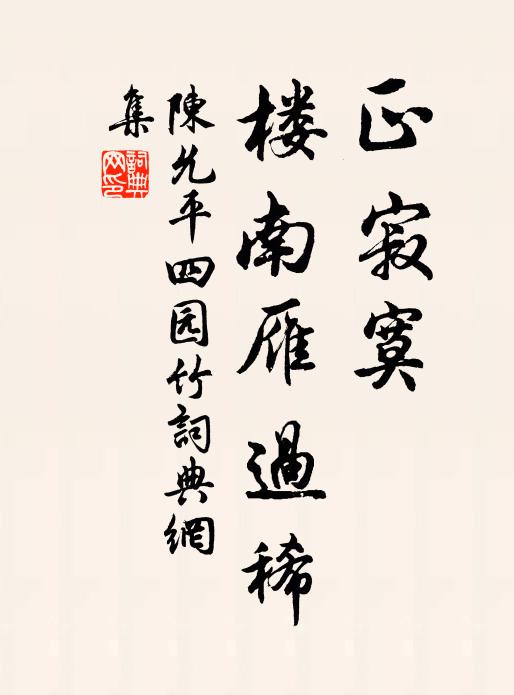 正寂寞
楼南雁過稀
陳允平四园竹詞典網
集
詞典网印